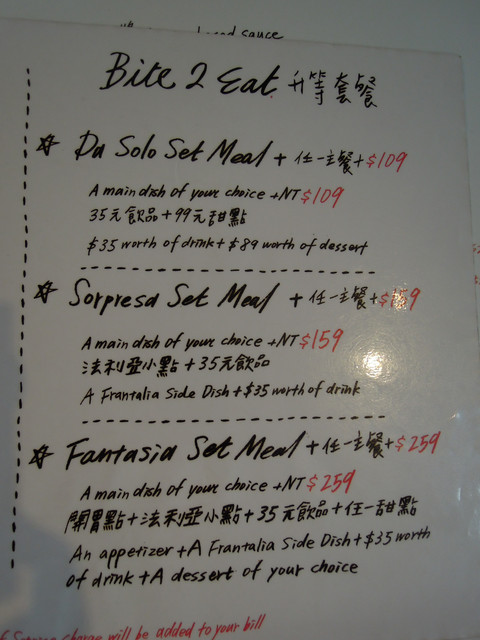 sauce
Bite 2 Eat 升等套餐
Da Solo Set Meal + 任一主餐+$109
A main dish of your choice +NT $109
35元飲品+99元甜點
$35 worth of drink+$89 worth of dessert
Sorpresa Set Meal + 任一主餐+$159
A main dish of your choice +NT $159
法利亞小點+35元飲品
A Frantalia Side Dish+$35 worth of drink
Fantasia Set Meal+任一主餐+$259
A main dish of your choice +NT $259
開胃點+法利亞小點+35元飲品+任一甜點
An appetizer+A Frantalia Side Dish+$35 worth
of drink+A dessert of your choice
charge will be added to your bill